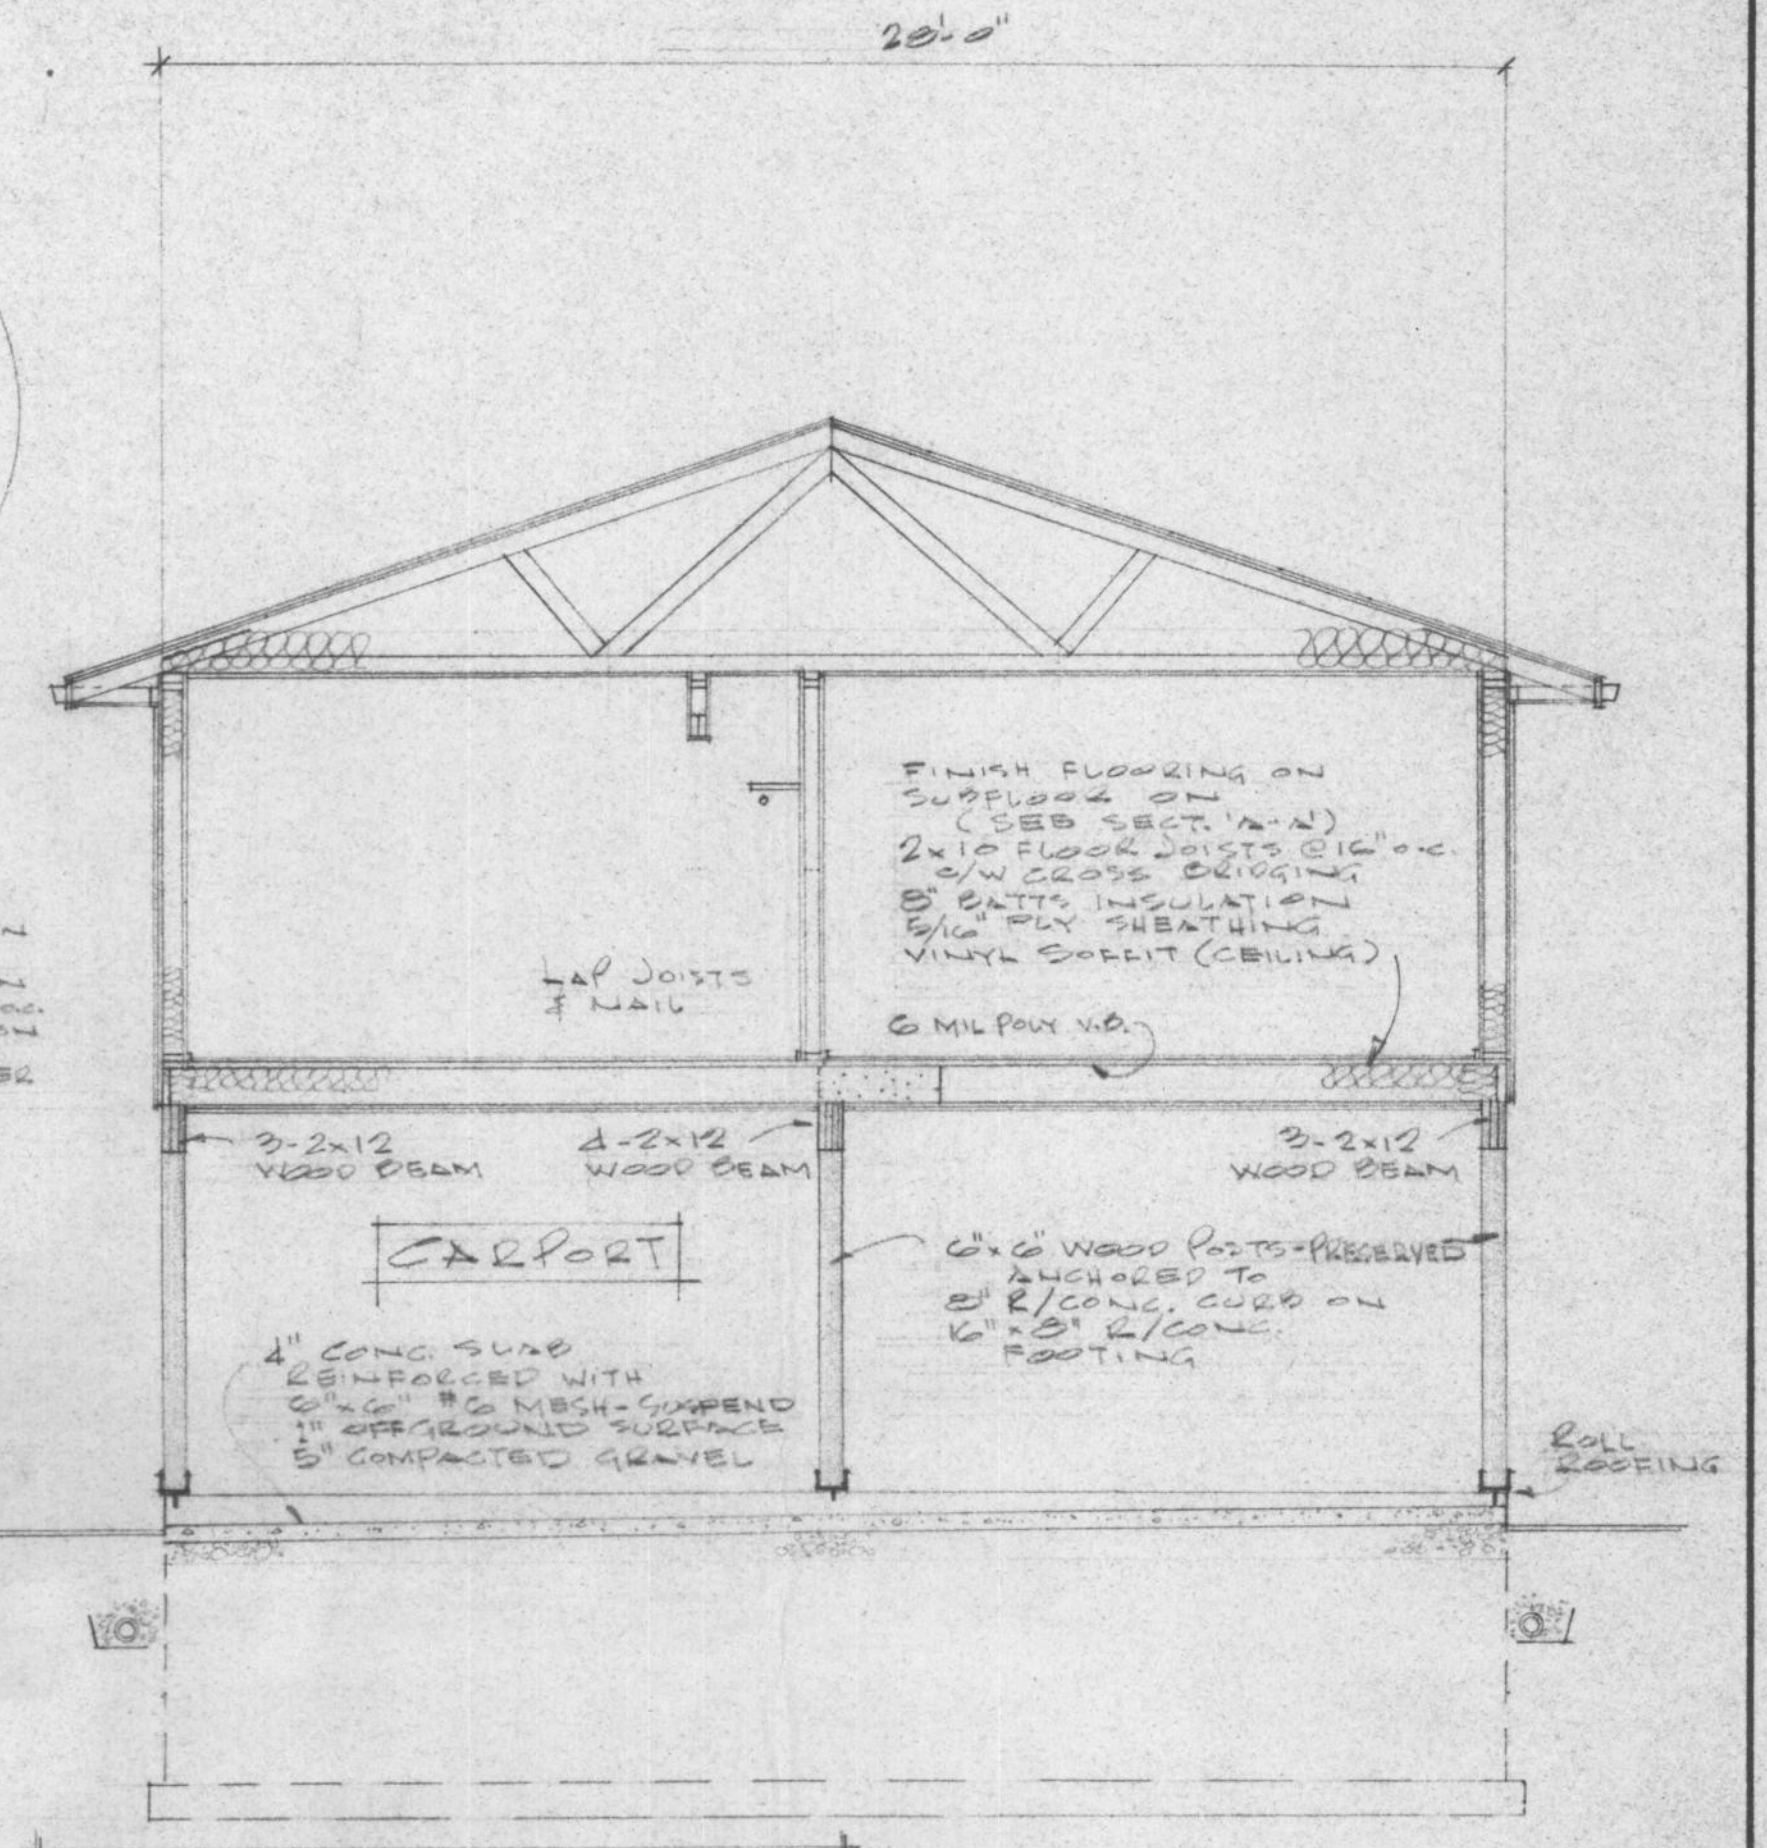 28'-0"
FINISH FLOORING ON
SUBFLOOR ON
(SEE SECT. 'A-A')
2x10 FLOOR JOISTS @ 16" o.c.
c/w CROSS BRIDGING
8" BATTS INSULATION
5/16" PLY SHEATHING
VINYL SOFFIT (CEILING)
LAP JOISTS
& NAIL
6 MIL POLY V.B.
3-2x12
WOOD BEAM
4-2x12
WOOD BEAM
3-2x12
WOOD BEAM
CARPORT
6"x6" WOOD POSTS-PRESERVED
ANCHORED TO
8" R/CONC. CURB ON
16"x8" R/CONC.
FOOTING
4" CONC. SLAB
REINFORCED WITH
6"x6" #6 MESH-SUSPEND
1" OFF GROUND SURFACE
5" COMPACTED GRAVEL
ROLL
ROOFING